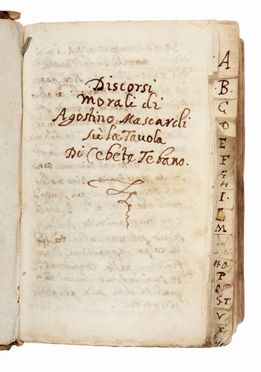 Discorsi
morali di
Agostino Mascardi
su la Tavola
Di Cebete Tebano.
A
B
C
D
E
F
G
H
I
L
M
N
O
P
Q
S
T
V